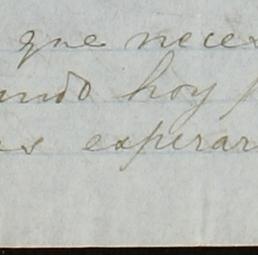 que neces
undo hoy
as esperar